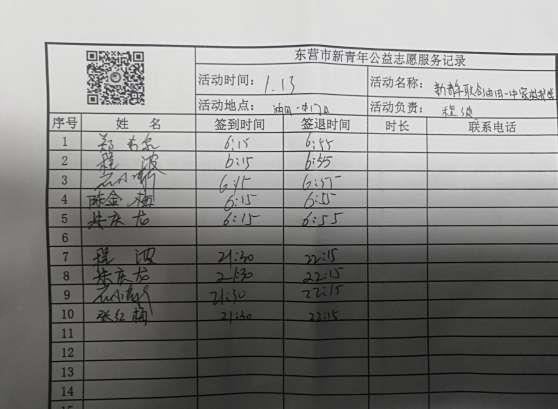 东营市新青年公益志愿服务记录
活动时间: 1.13 活动名称:
活动地点: 活动负责: 程波
序号 姓 名 签到时间 签退时间 时长 联系电话
1 6:15 6:55
2 程 波 6:15 6:55
3 6:15 6:55
4 陈金梅 6:15 6:55
5 朱庆龙 6:15 6:55
6
7 程 波 21:30 22:15
8 朱庆龙 21:30 22:15
9 21:30 22:15
10 张红梅 21:30 22:15
11
12
13
14